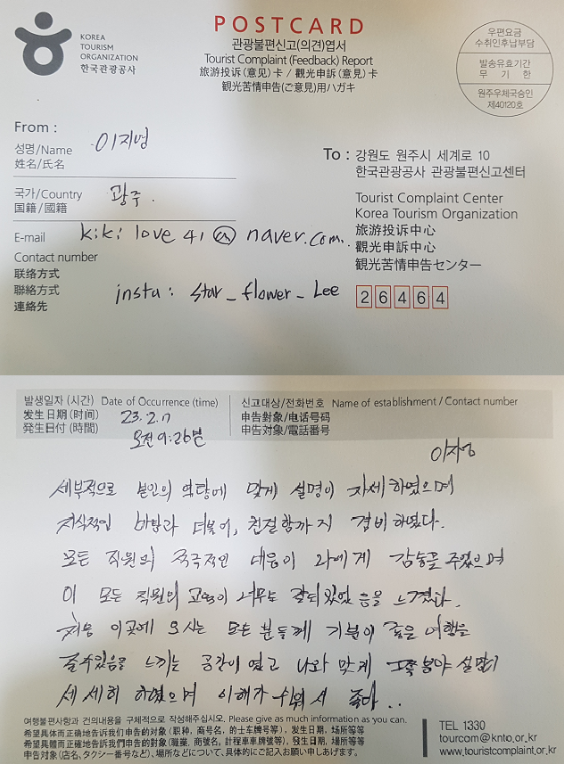 KOREA
TOURISM
ORGANIZATION
한국관광공사
POSTCARD
관광불편신고(의견)엽서
Tourist Complaint (Feedback) Report
旅游投诉(意见)卡 / 觀光申訴(意見)卡
観光苦情申告(ご意見)用ハガキ
우편요금
수취인후납부담
발송유효기간
무 기 한
원주우체국승인
제40120호
From :
성명/Name 이지영
姓名/氏名
국가/Country 광주.
国籍/國籍
E-mail kiki love 41 @ naver.com.
Contact number
联络方式
聯絡方式 insta : star_flower_Lee
連絡先
To : 강원도 원주시 세계로 10
한국관광공사 관광불편신고센터
Tourist Complaint Center
Korea Tourism Organization
旅游投诉中心
觀光申訴中心
観光苦情申告センター
26464
발생일자 (시간) Date of Occurrence (time)
发生日期(时间) 23.2.17
発生日付(時間) 오전 9:26분
신고대상/전화번호 Name of establishment / Contact number
申告對象/电话号码
申告対象/電話番号
이지영
세부적으로 본인의 역량에 맞게 설명이 자세하였으며
지식적인 바탕과 더불어, 친절함까지 겸비하였다.
모든 직원의 적극적인 대응이 나에게 감동을 주었으며
이 모든 직원의 교육이 너무도 잘되있었음을 느꼈다.
처음 이곳에 오시는 모든 분들께 기분이 좋은 여행을
할수있음을 느끼는 공간이 였고 나와 맞게 설명이
세세히 하였으며 이해가 쉬워서 좋다..
여행불편사항과 건의내용을 구체적으로 작성해주십시오. Please give as much information as you can.
希望具体而正确地告诉我们申告的对象(职种, 商号名, 的士车牌号等), 发生日期, 场所等等
希望具體而正確地告訴我們申告的對象(職業, 商號名, 計程車車牌號等), 發生日期, 場所等等
申告対象(店名、タクシー番号など)、場所などについて、具体的にご記入お願い申しあげます。
TEL 1330
tourcom@knto.or.kr
www.touristcomplaint.or.kr